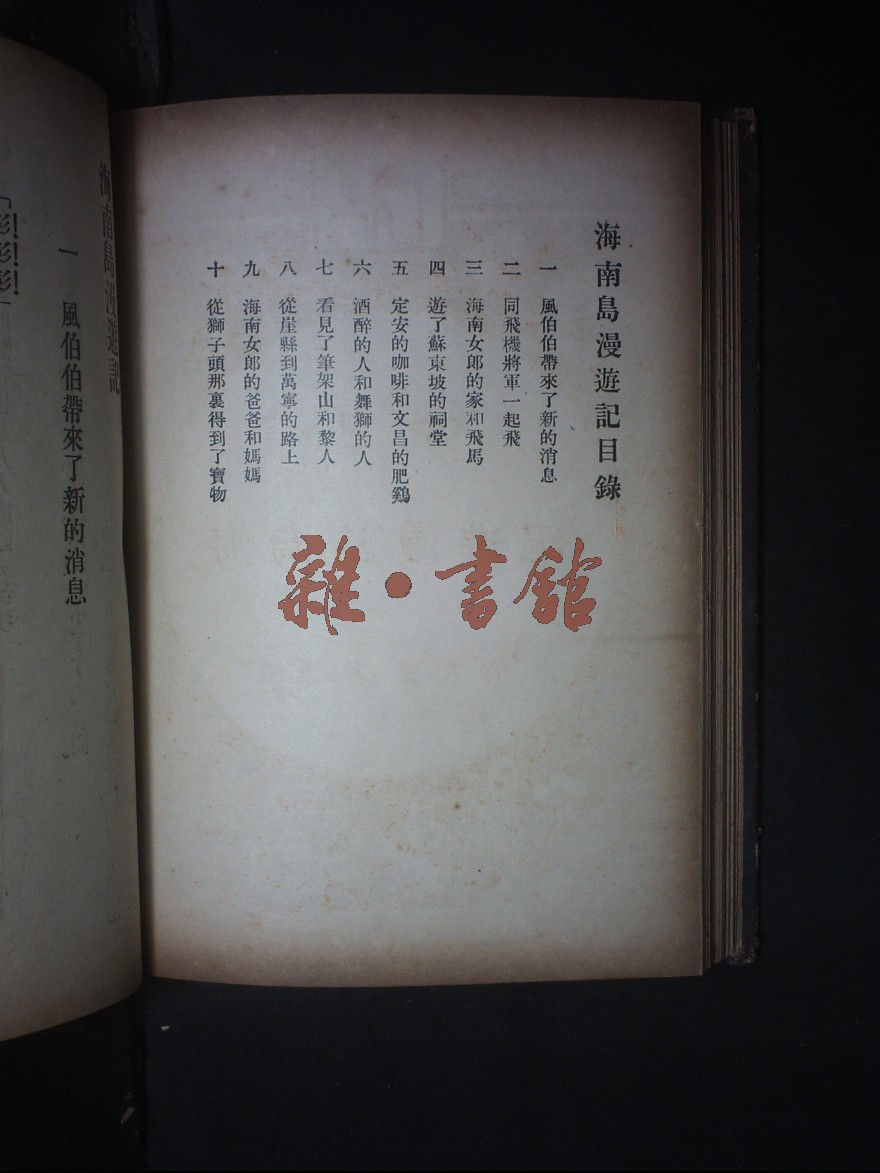 海南島漫遊記目錄
一 風伯伯帶來了新的消息
二 同飛機將軍一起飛
三 海南女郎的家和飛馬
四 遊了蘇東坡的祠堂
五 定安的咖啡和文昌的肥鷄
六 酒醉的人和舞獅的人
七 看見了筆架山和黎人
八 從崖縣到萬寧的路上
九 海南女郎的爸爸和媽媽
十 從獅子頭那裏得到了寶物
雜·書館
海南島漫遊記
一 風伯伯帶來了新的消息
「彭!彭!彭!」